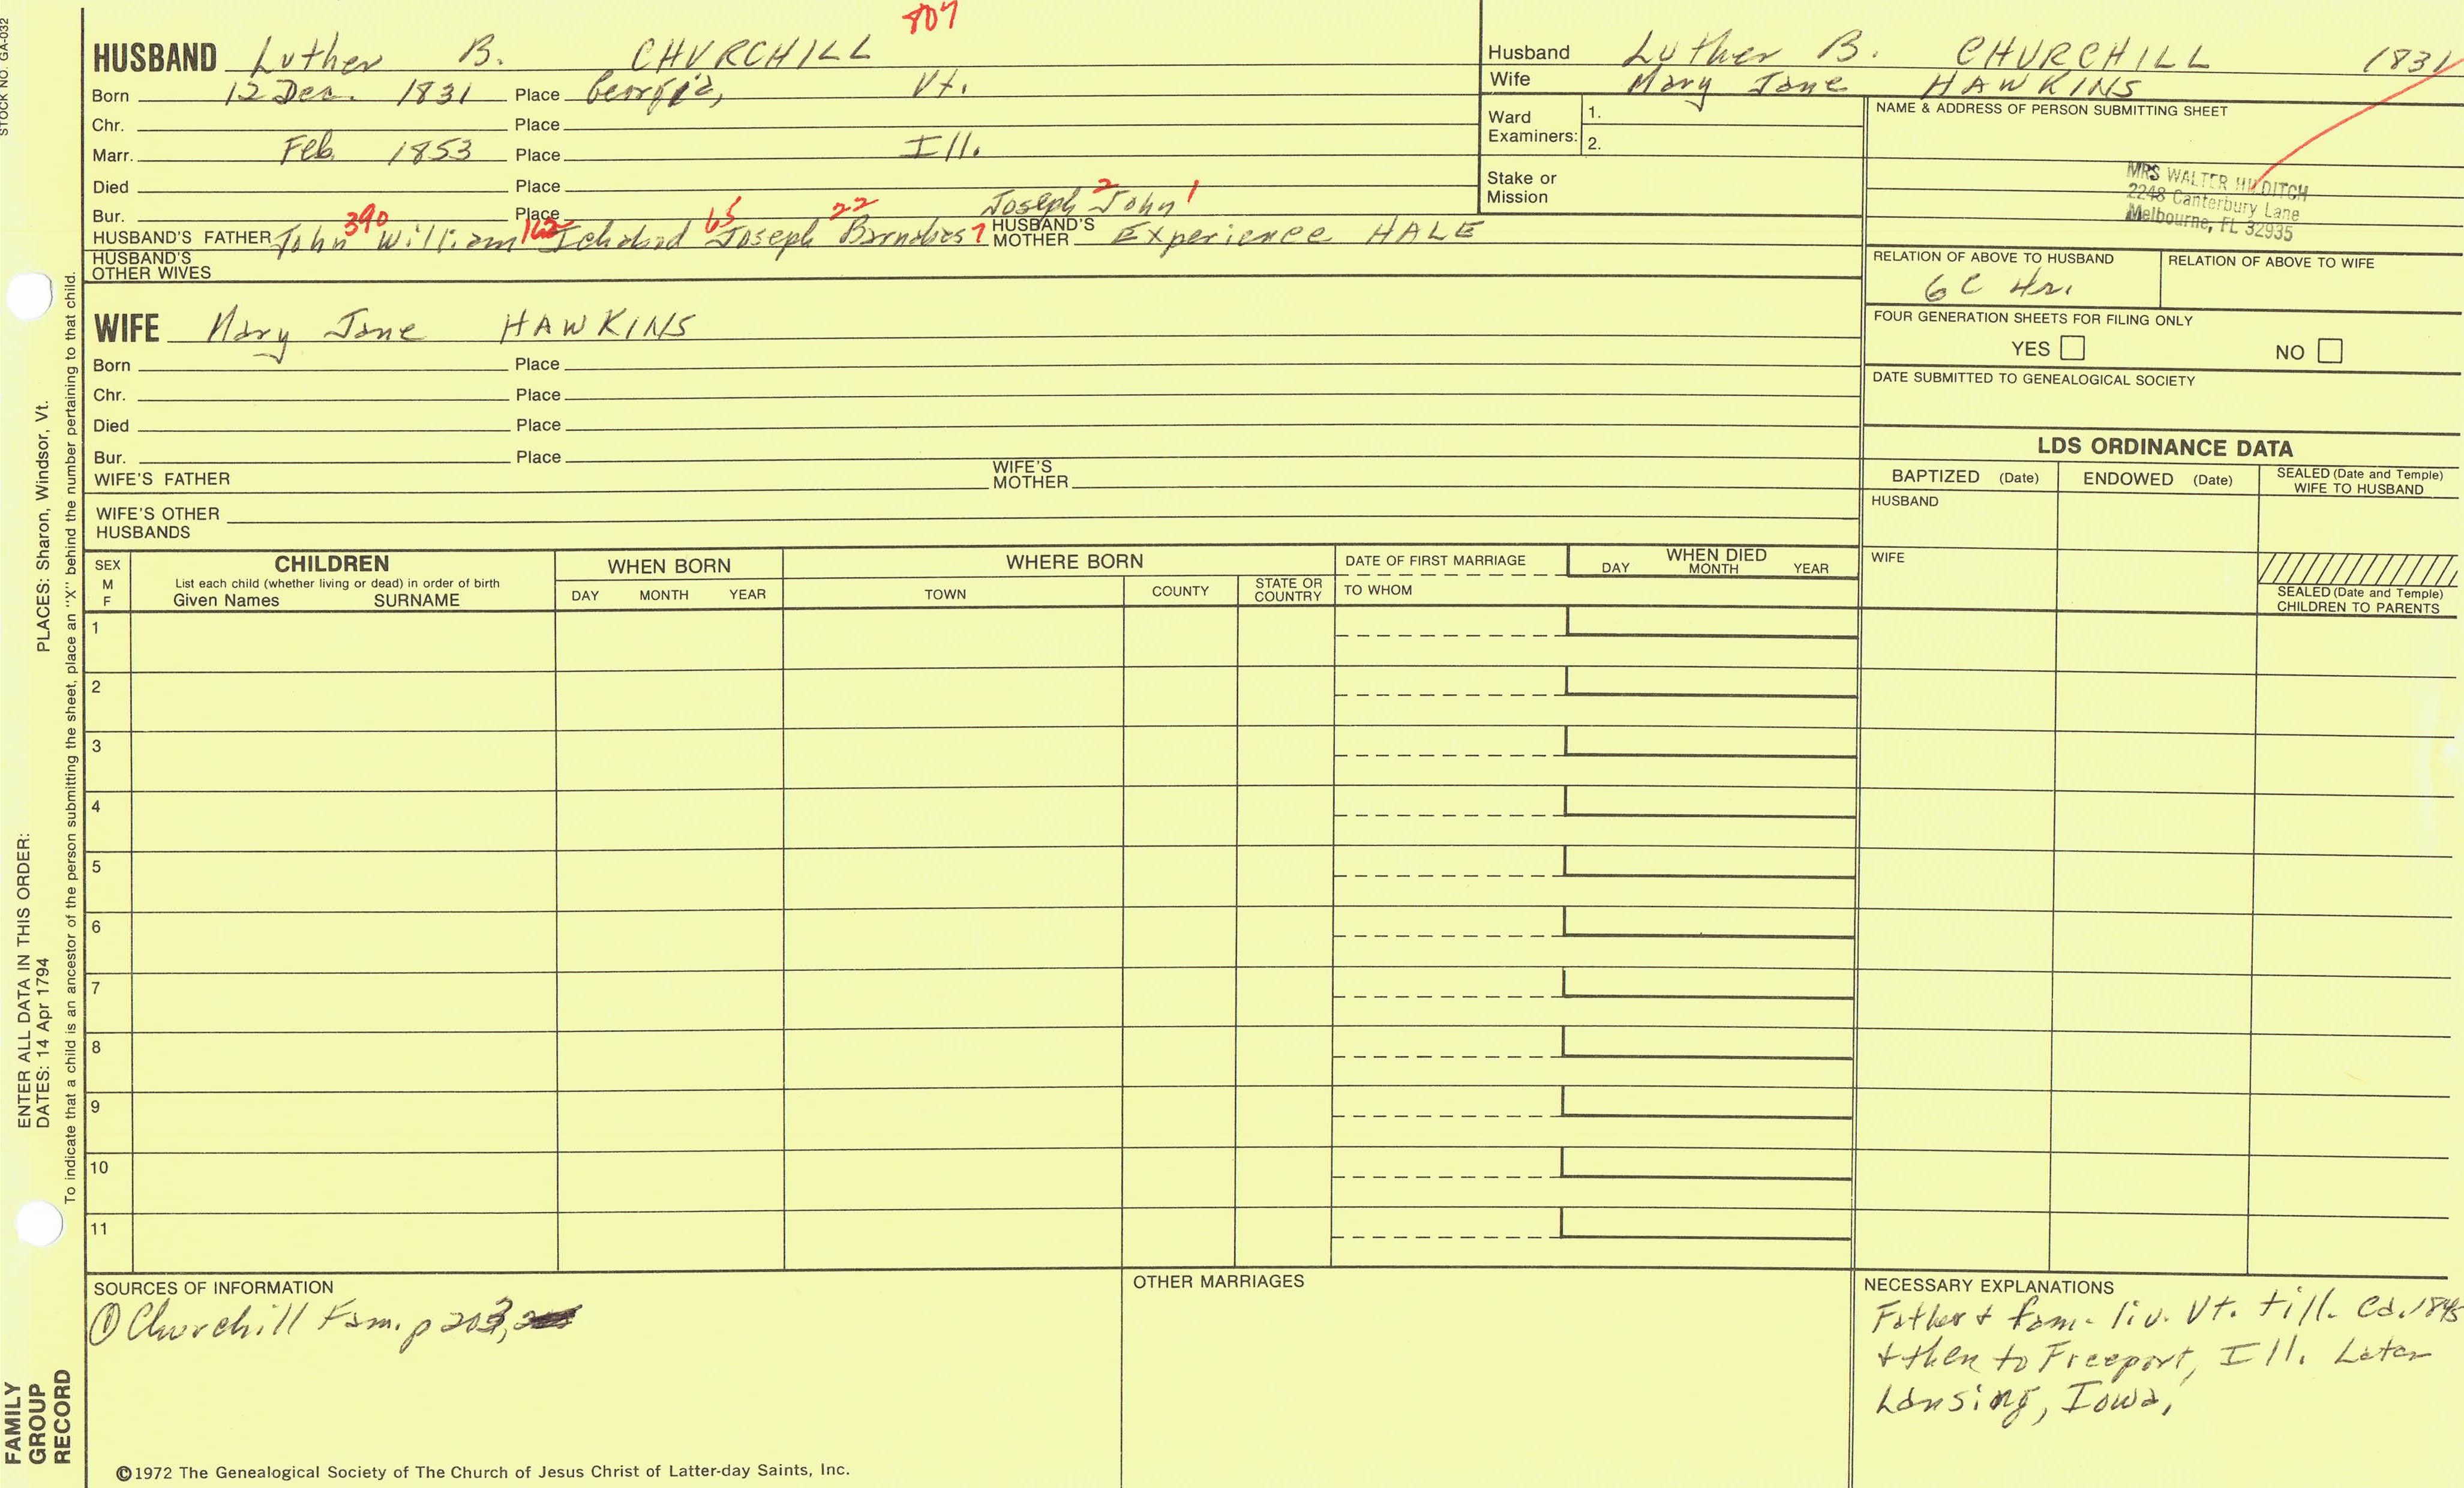 STOCK NO. GA-032
807
HUSBAND Luther B. CHURCHILL
Born 12 Dec. 1831 Place Georgia, Vt.
Chr. Place
Marr. Feb. 1853 Place Ill.
Died Place
Bur. Place
Joseph 2 John 1
HUSBAND'S FATHER John 390 William 162 Ichabod 65 Joseph 22 Barnabas 7 HUSBAND'S MOTHER Experience HALE
HUSBAND'S OTHER WIVES
WIFE Mary Jane HAWKINS
Born Place
Chr. Place
Died Place
Bur. Place
WIFE'S FATHER WIFE'S MOTHER
WIFE'S OTHER HUSBANDS
Husband Luther B. CHURCHILL 1831
Wife Mary Jane HAWKINS
Ward Examiners: 1.
2.
Stake or Mission
NAME & ADDRESS OF PERSON SUBMITTING SHEET
MRS WALTER HILDITCH
2248 Canterbury Lane
Melbourne, FL 32935
RELATION OF ABOVE TO HUSBAND RELATION OF ABOVE TO WIFE
6C 4r.
FOUR GENERATION SHEETS FOR FILING ONLY
YES NO
DATE SUBMITTED TO GENEALOGICAL SOCIETY
LDS ORDINANCE DATA
BAPTIZED (Date) ENDOWED (Date) SEALED (Date and Temple) WIFE TO HUSBAND
HUSBAND
WIFE
SEALED (Date and Temple) CHILDREN TO PARENTS
SEX M F
CHILDREN
List each child (whether living or dead) in order of birth
Given Names SURNAME
WHEN BORN
DAY MONTH YEAR
WHERE BORN
TOWN COUNTY STATE OR COUNTRY
DATE OF FIRST MARRIAGE
TO WHOM
WHEN DIED
DAY MONTH YEAR
1
2
3
4
5
6
7
8
9
10
11
SOURCES OF INFORMATION
① Churchill Fam. p 203,
OTHER MARRIAGES
NECESSARY EXPLANATIONS
Father + fam. liv. Vt. till. Ca. 1845
+ then to Freeport, Ill. Later
Lansing, Iowa,
©1972 The Genealogical Society of The Church of Jesus Christ of Latter-day Saints, Inc.
FAMILY GROUP RECORD
ENTER ALL DATA IN THIS ORDER:
DATES: 14 Apr 1794
PLACES: Sharon, Windsor, Vt.
To indicate that a child is an ancestor of the person submitting the sheet, place an "X" behind the number pertaining to that child.